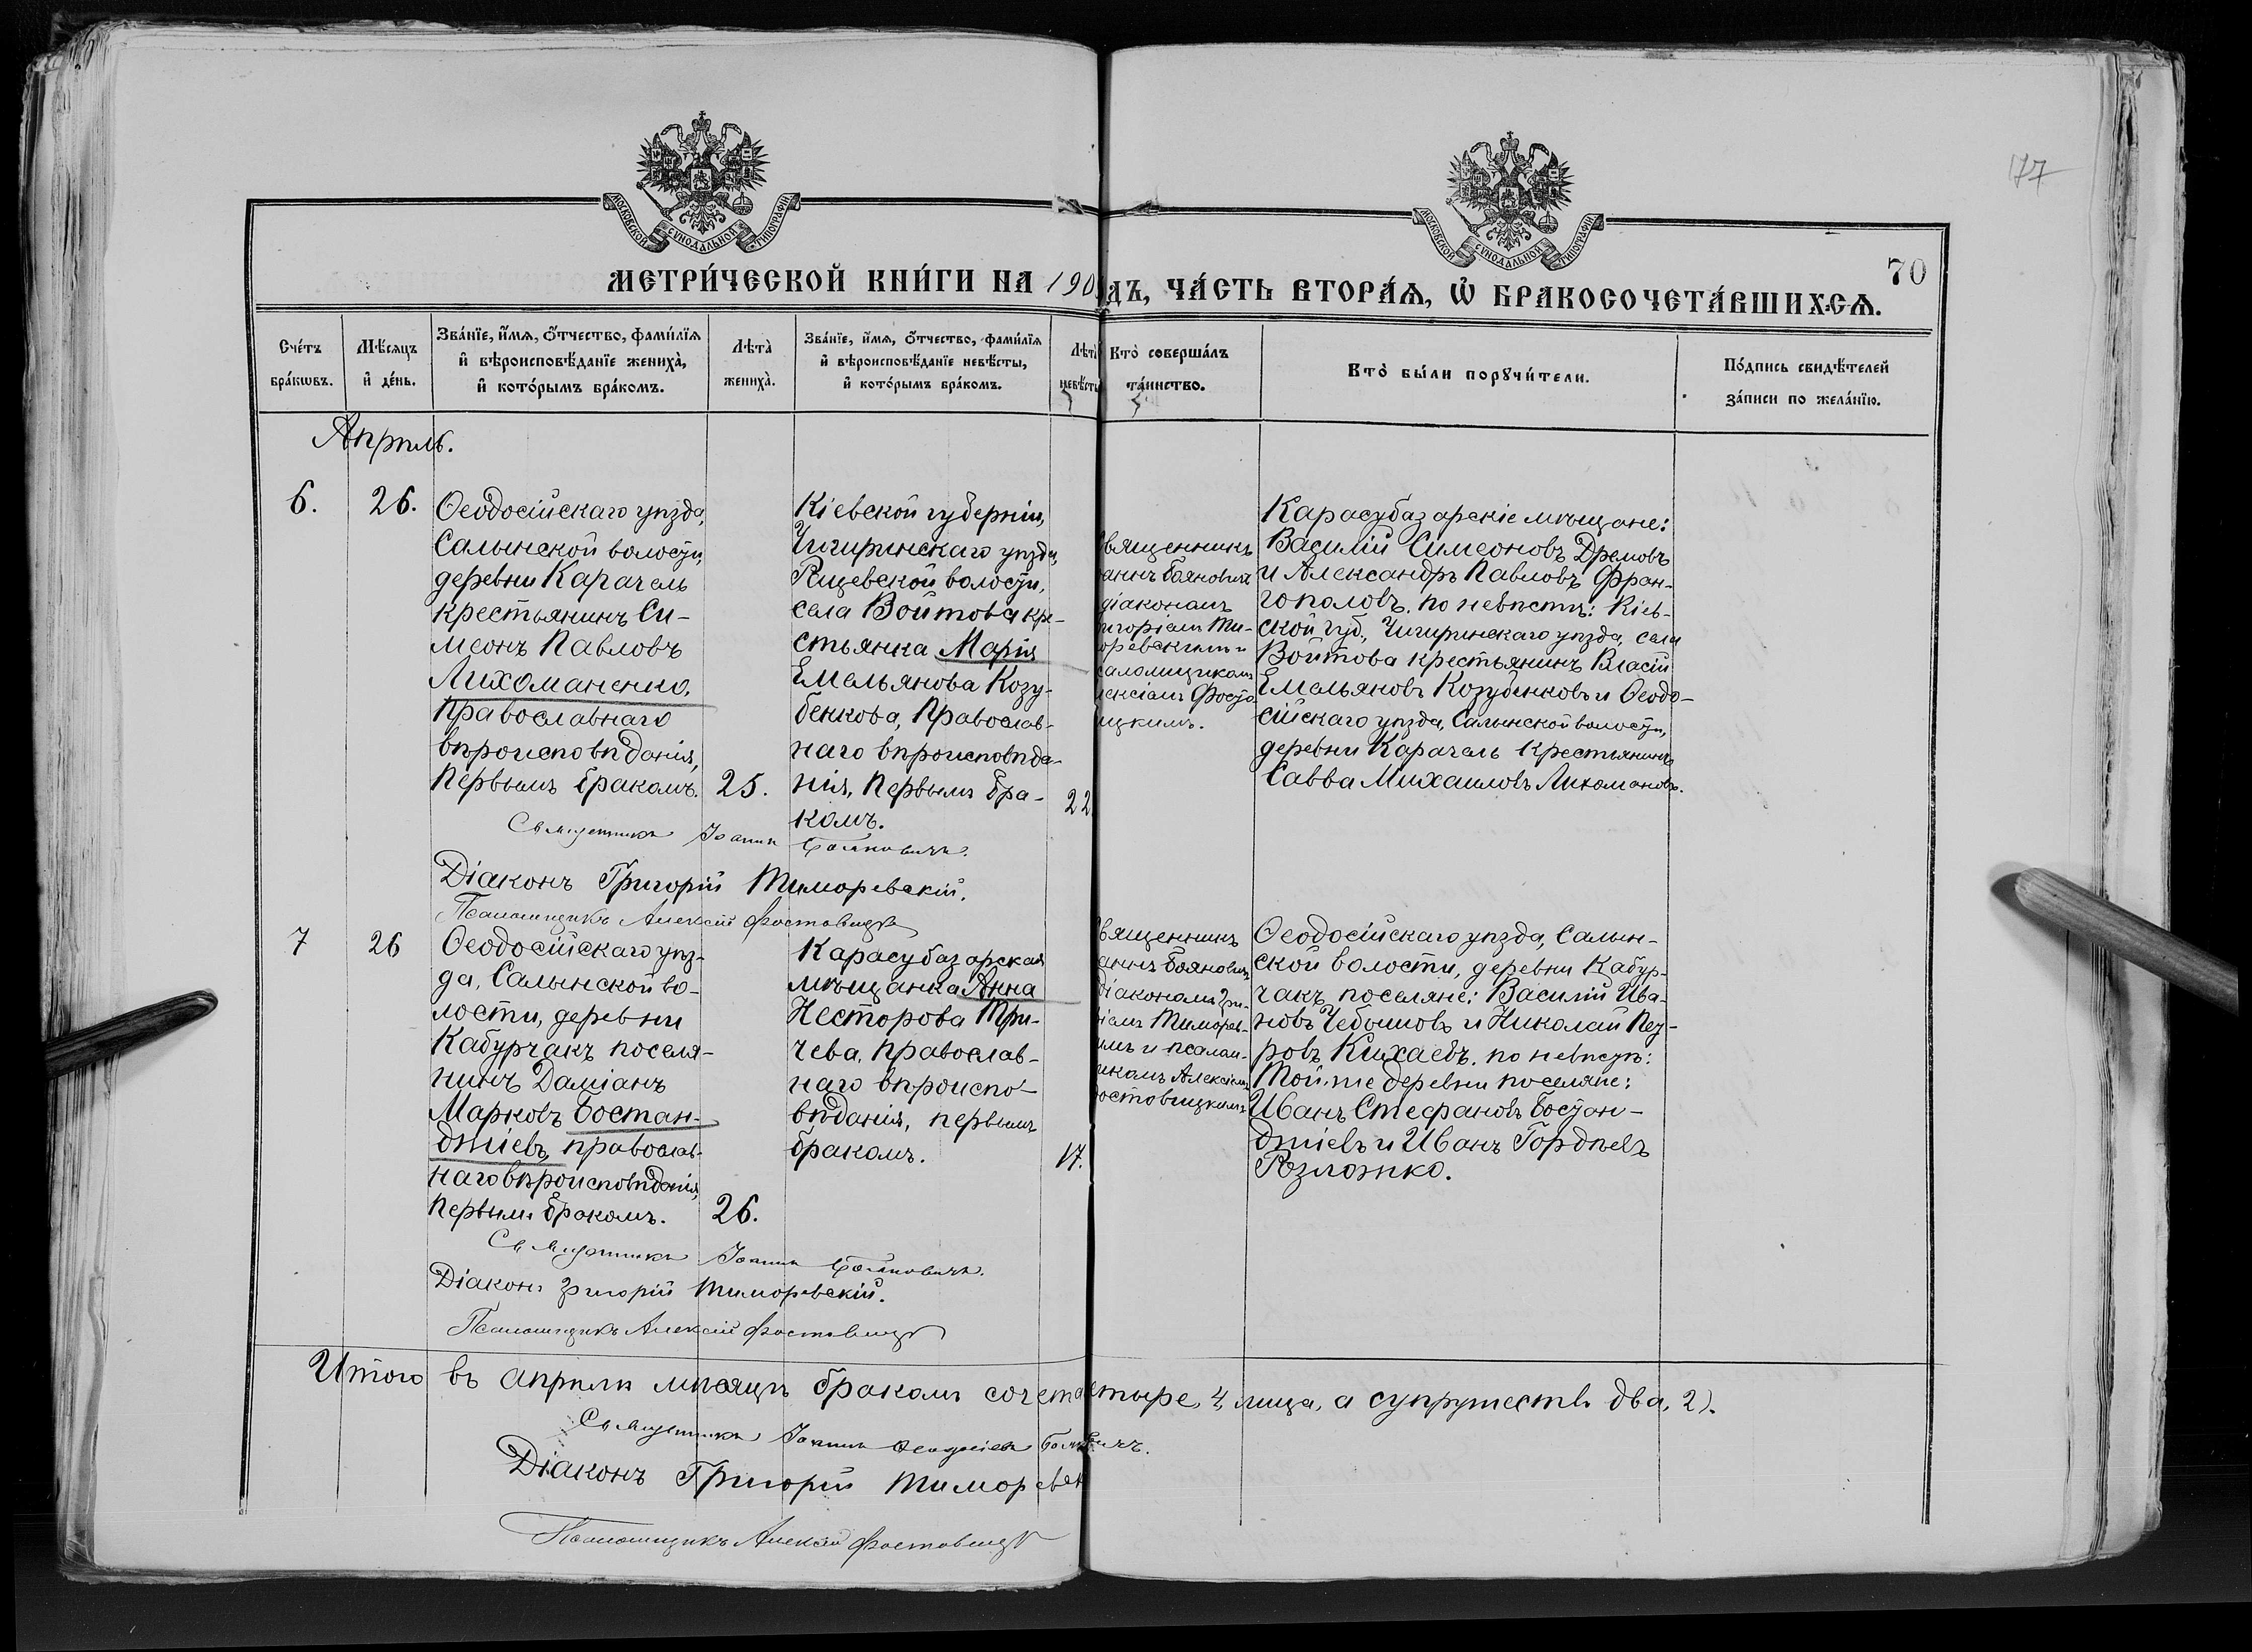 МОСКОВСКОЙ СУНОДАЛЬНОЙ ТИПОГРАФІИ
МОСКОВСКОЙ СУНОДАЛЬНОЙ ТИПОГРАФІИ
177
70
МЕТРИ́ЧЕСКОЙ КНИ́ГИ НА 190
ДЪ, ЧА́СТЬ ВТОРА́Ѧ, Ѡ҆ БРАКОСОЧЕТА́ВШИХСѦ.
Сче́тъ
бра́кѡвъ.
Мѣ́сяцъ
и҆ де́нь.
Зва́нїе, и҆́мѧ, ѻ҆́тчество, фами́лїѧ
и҆ вѣроисповѣ́данїе жениха̀,
и҆ кото́рымъ бра́комъ.
Лѣта̀
жениха̀.
Зва́нїе, и҆́мѧ, ѻ҆́тчество, фами́лїѧ
и҆ вѣроисповѣ́данїе невѣ́сты,
и҆ кото́рымъ бра́комъ.
Лѣта̀
невѣ́сты
Кто̀ соверша́лъ
та́инство.
Кто̀ бы́ли порꙋчи́тели.
По́дпись свидѣ́телей
за́писи по жела́нїю.
Апрѣль.
6.
26.
Ѳеодосійскаго уѣзда,
Салынской волости,
деревни Карачель
крестьянинъ Си-
меонъ Павловъ
Лихоманенко,
православнаго
вѣроисповѣданія,
первымъ бракомъ.
25.
Кіевской губерніи,
Чигиринскаго уѣзда,
Рацевской волости,
села Войтова кре-
стьянка Марія
Емельянова Козу-
бенкова, православ-
наго вѣроисповѣда-
нія, первымъ бра-
комъ.
22
вященникъ
аннъ Бояновичъ
діакономъ
игоріемъ Ти-
оревскимъ и
саломщикомъ
лексіемъ Фосто
ицкимъ.
Карасубазарскіе мѣщане:
Василій Симеоновъ Дремовъ
и Александръ Павловъ Фран-
гополовъ. по невѣстѣ: Кіев-
ской губ., Чигиринскаго уѣзда, села
Войтова крестьянинъ Власій
Емельяновъ Козубенковъ и Ѳеодо-
сійскаго уѣзда, Салынской волости,
деревни Карачель крестьянинъ
Савва Михаиловъ Лихомановъ.
Священникъ Іоаннъ Бояновичъ.
Діаконъ Григорій Тиморевскій.
Псаломщикъ Алексій Фостовицкій
7
26
Ѳеодосійскаго уѣз-
да, Салынской во-
лости, деревни
Кабурчакъ поселя-
нинъ Даміанъ
Марковъ Бостан-
джіевъ, православ-
наго вѣроисповѣданія,
первымъ бракомъ.
26.
Карасубазарская
мѣщанка Анна
Несторова Три-
чева, православ-
наго вѣроиспо-
вѣданія, первымъ
бракомъ.
17.
вященникъ
аннъ Бояновичъ,
діакономъ Гри-
ріемъ Тиморев-
имъ и псалом-
икомъ Алексіемъ
остовицкимъ
Ѳеодосійскаго уѣзда, Салын-
ской волости, деревни Кабур-
чакъ поселяне: Василій Ива-
новъ Чебышовъ и Николай Пет-
ровъ Кихаевъ. по невѣстѣ:
Той-же деревни поселяне:
Иванъ Стефановъ Бостан-
джіевъ и Иванъ Гордѣевъ
Розложко.
Священникъ Іоаннъ Бояновичъ.
Діаконъ Григорій Тиморевскій.
Псаломщикъ Алексій Фостовицкій
Итого въ апрѣлѣ мѣсяцѣ бракомъ сочета етыре, 4, лица, а супружествъ два, 2).
Священникъ Іоаннъ Ѳеодосіевъ Бояновичъ.
Діаконъ Григорій Тиморевск
Псаломщикъ Алексій Фостовицкій